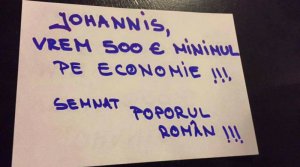 JOHANNIS,
VREM 500 € MINIMUL
PE ECONOMIE !!!,
SEMNAT POPORUL
ROMÂN !!!